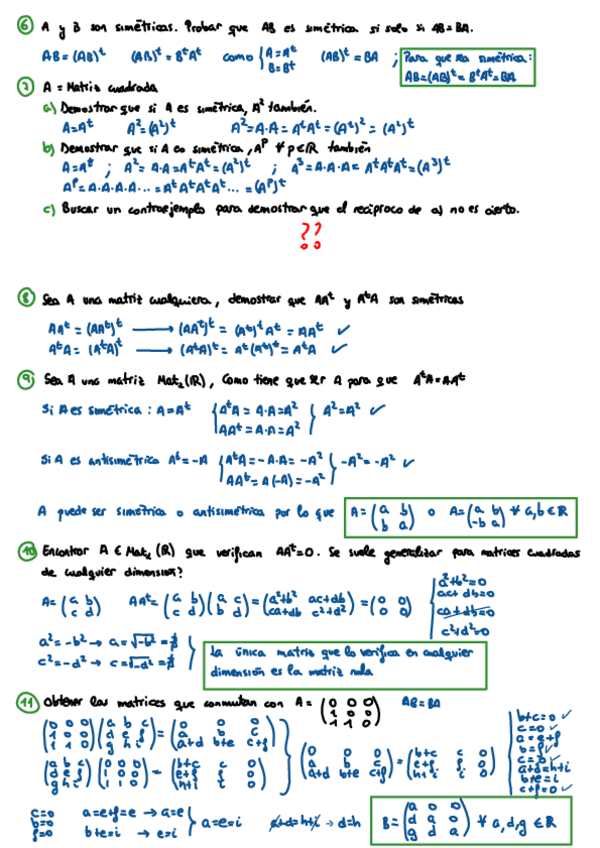 6 A y B son simétricas. Probar que AB es simétrica si solo si AB=BA.
AB=(AB)ᵗ (AB)ᵗ=BᵗAᵗ como { A=Aᵗ B=Bᵗ (AB)ᵗ=BA ; Para que sea simétrica: AB=(AB)ᵗ=BᵗAᵗ=BA
7 A = Matriz cuadrada
a) Demostrar que si A es simétrica, A² también.
A=Aᵗ A²=(A²)ᵗ A²=A·A=AᵗAᵗ=(Aᵗ)²=(A²)ᵗ
b) Demostrar que si A es simétrica, Aᵖ ∀ p∈ℝ también
A=Aᵗ ; A²=A·A=AᵗAᵗ=(A²)ᵗ ; A³=A·A·A=AᵗAᵗAᵗ=(A³)ᵗ
Aᵖ=A·A·A·A...=AᵗAᵗAᵗAᵗ...=(Aᵖ)ᵗ
c) Buscar un contraejemplo para demostrar que el recíproco de a) no es cierto.
??
8 Sea A una matriz cualquiera, demostrar que AAᵗ y AᵗA son simétricas
AAᵗ=(AAᵗ)ᵗ → (AAᵗ)ᵗ=(Aᵗ)ᵗAᵗ=AAᵗ ✓
AᵗA=(AᵗA)ᵗ → (AᵗA)ᵗ=Aᵗ(Aᵗ)ᵗ=AᵗA ✓
9 Sea A una matriz Mat₂(ℝ), Como tiene que ser A para que AᵗA=AAᵗ
Si A es simétrica: A=Aᵗ { AᵗA=A·A=A² AAᵗ=A·A=A² } A²=A² ✓
Si A es antisimétrica Aᵗ=-A { AᵗA=-A·A=-A² AAᵗ=A(-A)=-A² } -A²=-A² ✓
A puede ser simétrica o antisimétrica por lo que A=(a b / b a) o A=(a b / -b a) ∀ a,b∈ℝ
10 Encontrar A∈Mat₂(ℝ) que verifican AAᵗ=0. Se suele generalizar para matrices cuadradas
de cualquier dimensión?
A=(a b / c d) AAᵗ=(a b / c d)(a c / b d)=(a²+b² ac+db / ca+db c²+d²)=(0 0 / 0 0)
a²+b²=0
ac+db=0
ca+db=0
c²+d²=0
a²=-b² → a=√-b²=∄
c²=-d² → c=√-d²=∄
La única matriz que lo verifica en cualquier
dimensión es la matriz nula
11 Obtener las matrices que conmutan con A=(0 0 0 / 1 0 0 / 1 1 0) AB=BA
(0 0 0 / 1 0 0 / 1 1 0)(a b c / d e f / g h i)=(0 0 0 / a b c / a+d b+e c+f)
(a b c / d e f / g h i)(0 0 0 / 1 0 0 / 1 1 0)=(b+c c 0 / e+f f 0 / h+i i 0)
(0 0 0 / a b c / a+d b+e c+f)=(b+c c 0 / e+f f 0 / h+i i 0)
b+c=0 ✓
c=0 ✓
a=e+f
b=f ✓
c=0 ✓
a+d=h+i
b+e=i
c+f=0 ✓
c=0
b=0
f=0
a=e+f=e → a=e
b+e=i → e=i
} a=e=i
a+d=h+i → d=h
B=(a 0 0 / d a 0 / g d a) ∀ a,d,g∈ℝ